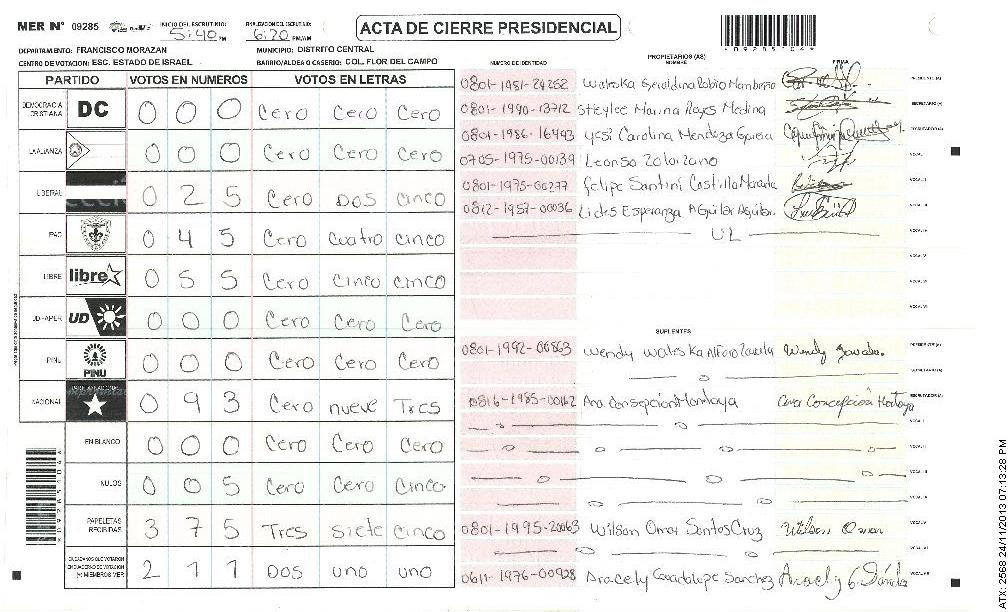 MER N° 09285 INICIO DEL ESCRUTINIO: 5:40 PM FINALIZACION DEL ESCRUTINIO: 6:20 PM/AM
ACTA DE CIERRE PRESIDENCIAL
DEPARTAMENTO: FRANCISCO MORAZAN MUNICIPIO: DISTRITO CENTRAL
CENTRO DE VOTACION: ESC. ESTADO DE ISRAEL BARRIO/ALDEA O CASERIO: COL. FLOR DEL CAMPO
PARTIDO VOTOS EN NUMEROS VOTOS EN LETRAS
DEMOCRACIA CRISTIANA DC 0 0 0 Cero Cero Cero
LA ALIANZA 0 0 0 Cero Cero Cero
LIBERAL 0 2 5 Cero Dos cinco
PAC 0 4 5 Cero cuatro cinco
LIBRE libre 0 5 5 Cero cinco cinco
UD-FAPER UD 0 0 0 Cero Cero Cero
PINU PINU 0 0 0 Cero Cero Cero
NACIONAL 0 9 3 Cero nueve Tres
EN BLANCO 0 0 0 Cero Cero Cero
NULOS 0 0 5 Cero Cero Cinco
PAPELETAS RECIBIDAS 3 7 5 Tres siete cinco
CIUDADANOS QUE VOTARON EN CUADERNO DE VOTACION (+) MIEMBROS MER 2 1 1 Dos uno uno
PROPIETARIOS (AS)
NUMERO DE IDENTIDAD NOMBRE FIRMA
0801-1981-24252 Waleska Geraldina PRESIDENTE (A)
0801-1990-13712 Sheylee Marina Reyes Medina SECRETARIO (A)
0801-1986-16493 Yessi Carolina Mendoza Garcia ESCRUTADOR (A)
0705-1975-00139 Leonso VOCAL I
0801-1975-00277 Felipe Santini Castillo VOCAL II
0812-1957-00036 Esperanza Aguilar Aguilar VOCAL III
VOCAL IV
VOCAL V
VOCAL VI
VOCAL VII
SUPLENTES
0801-1992-00863 Wendy Waleska Alfaro Zavala Wendy Zavala. PRESIDENTE (A)
SECRETARIO (A)
0816-1985-00162 Ana Concepción Montoya Ana Concepción Montoya ESCRUTADOR (A)
VOCAL I
VOCAL II
VOCAL III
VOCAL IV
0801-1995-20063 Wilson Omar Santos Cruz Wilson Omar VOCAL V
VOCAL VI
0611-1976-00928 Aracely Guadalupe Sanchez Aracely G. Sánchez VOCAL VII
ATX: 2568 24/11/2013 07:13:28 PM